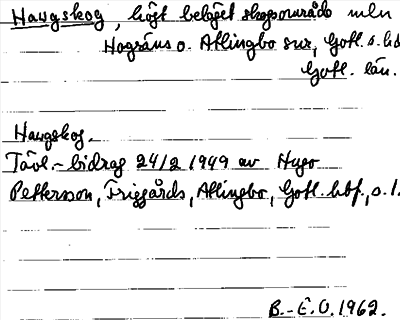 Haugskog, högt beläget skogsområde mln
Hogräns o. Atlingbo snr, Gotl. s. hd
Gotl. län.
Haugskog.
Tävl.-bidrag 24/2 1949 av Hugo
Pettersson, Friggårds, Atlingbo, Gotl. hbf, o. l.
B.-E. O. 1962.